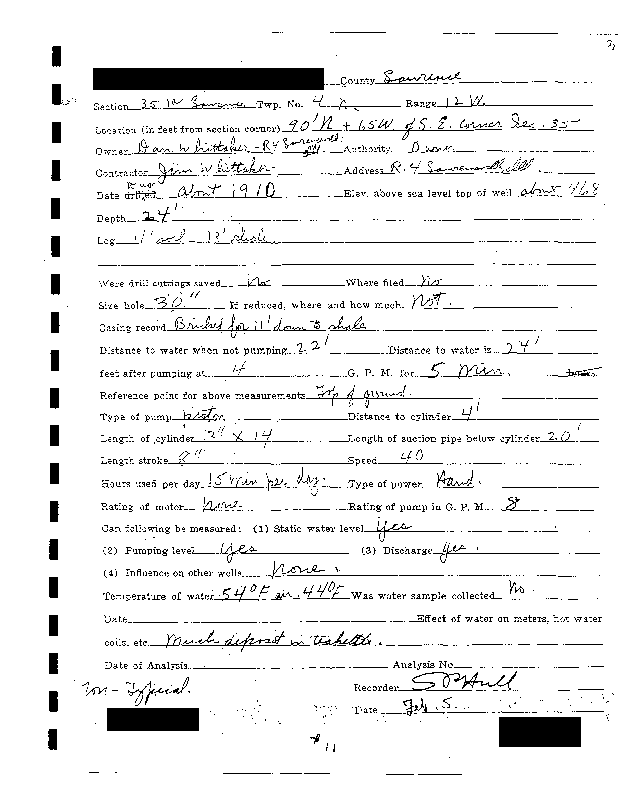 County Lawrence
Section 35 Twp. No. 4 N. Range 12 W
Location (in feet from section corner) 90' N + 65 W. of S. E. Corner Sec. 35
Owner Dan Whittaker - R4 Authority Owner
Contractor Jim Whittaker Address R. 4 Lawrenceville, Ill.
Date drilled About 1910 Elev. above sea level top of well about 468
Depth 24'
Log 11' soil - 13' shale
Were drill cuttings saved No Where filed No
Size hole 30" If reduced, where and how much Not.
Casing record Bricked for 11' down to shale
Distance to water when not pumping 22' Distance to water is 24'
feet after pumping at 4 G. P. M. for 5 Min.
Reference point for above measurements Top of ground.
Type of pump piston Distance to cylinder 4'
Length of cylinder 3" X 14 Length of suction pipe below cylinder 20'
Length stroke 8" Speed 40
Hours used per day 15 min per day. Type of power Hand.
Rating of motor none Rating of pump in G. P. M. 8
Can following be measured: (1) Static water level yes
(2) Pumping level yes (3) Discharge yes.
(4) Influence on other wells none.
Temperature of water 54°F air 44°F Was water sample collected No.
Date Effect of water on meters, hot water
coils, etc. Much deposit in teakettle.
Date of Analysis Analysis No.
Non-Typical. Recorder
Date Feb. 5
# 11